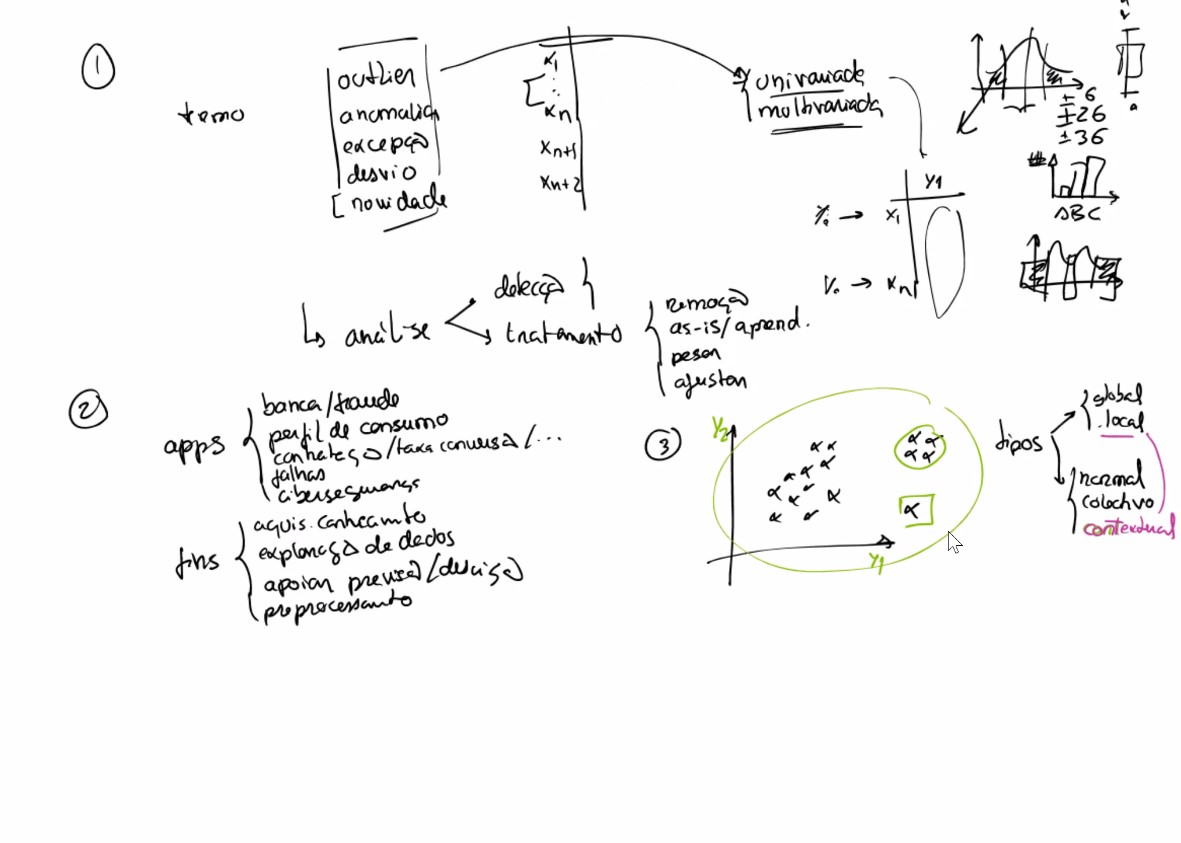 ①
termo
outlier
anomalia
excepção
desvio
novidade
x1
:
xn
xn+1
xn+2
univariada
multivariada
± σ
± 2σ
± 3σ
#
A B C
y1
→ x1
→ xn
↳ análise
detecção
tratamento
remoção
as-is/aprend.
pesar
ajustar
②
apps
banca/fraude
perfil de consumo
contratação/taxa conversão/...
falhas
cibersegurança
fins
aquis. conhecimto
exploração de dados
apoiar previsão/decisão
preprocessamto
③
y2
y1
tipos
global
local
normal
colectivo
contextual